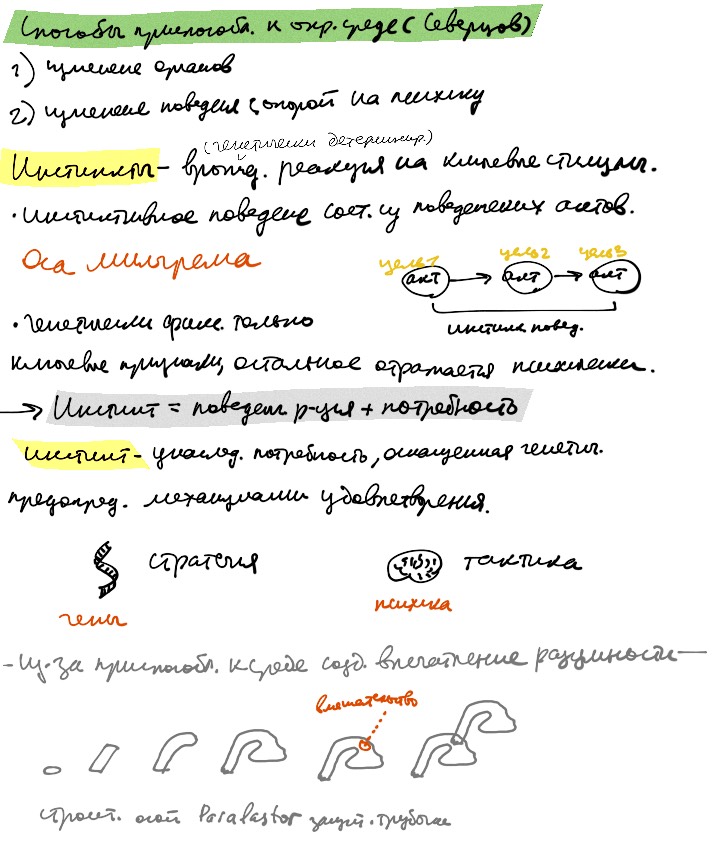 Способы приспособл. к окр. среде (Северцов)
1) изменение органов
2) изменение поведения с опорой на психику
(генетически детерминир.)
Инстинкты - врожд. реакция на ключевые стимулы.
· инстинктивное поведение сост. из поведенческих актов.
Оса милгрема
цель 1 цель 2 цель 3
акт акт акт
инстинк. повед.
· генетически фикс. только
ключевые признаки, остальное отражается психически.
→ Инстинкт = поведен. р-ция + потребность
инстинкт - унаслед. потребность, оснащенная генетич.
предопред. механизмами удовлетворения.
стратегия тактика
гены психика
- Из-за приспособл. к среде созд. впечатление разумности —
вмешательство
строит. осой Paralastor защит. трубочки